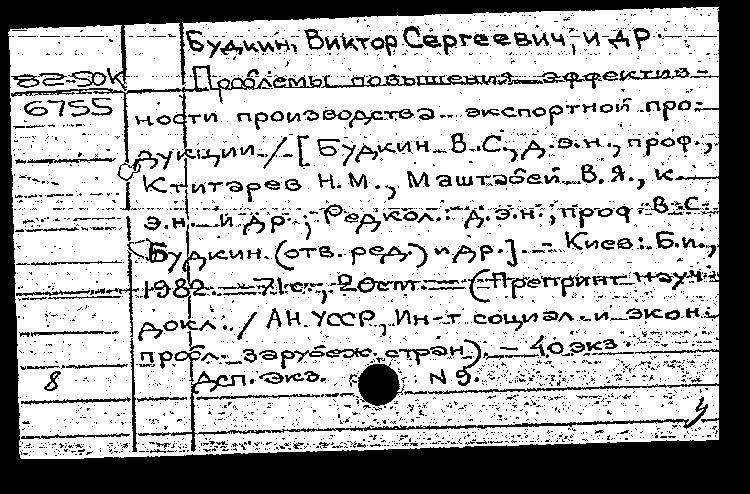 Будкин, Виктор Сергеевич, и др.
82-50к Проблемы повышения эффектив-
6755 ности производства экспортной про-
дукции / [Будкин В.С., д.э.н., проф.,
Ктитарев Н.М., Маштабей В.Я., к.
э.н. и др.; Редкол.: д.э.н., проф. В.С.
Будкин (отв. ред.) и др.]. - Киев: Б.и.,
1982. - 71 с.; 20 см. - (Препринт науч.
докл. / АН УССР, Ин-т социал. и экон.
пробл. зарубеж. стран). - 40 экз.
8 Деп. экз. N 9.